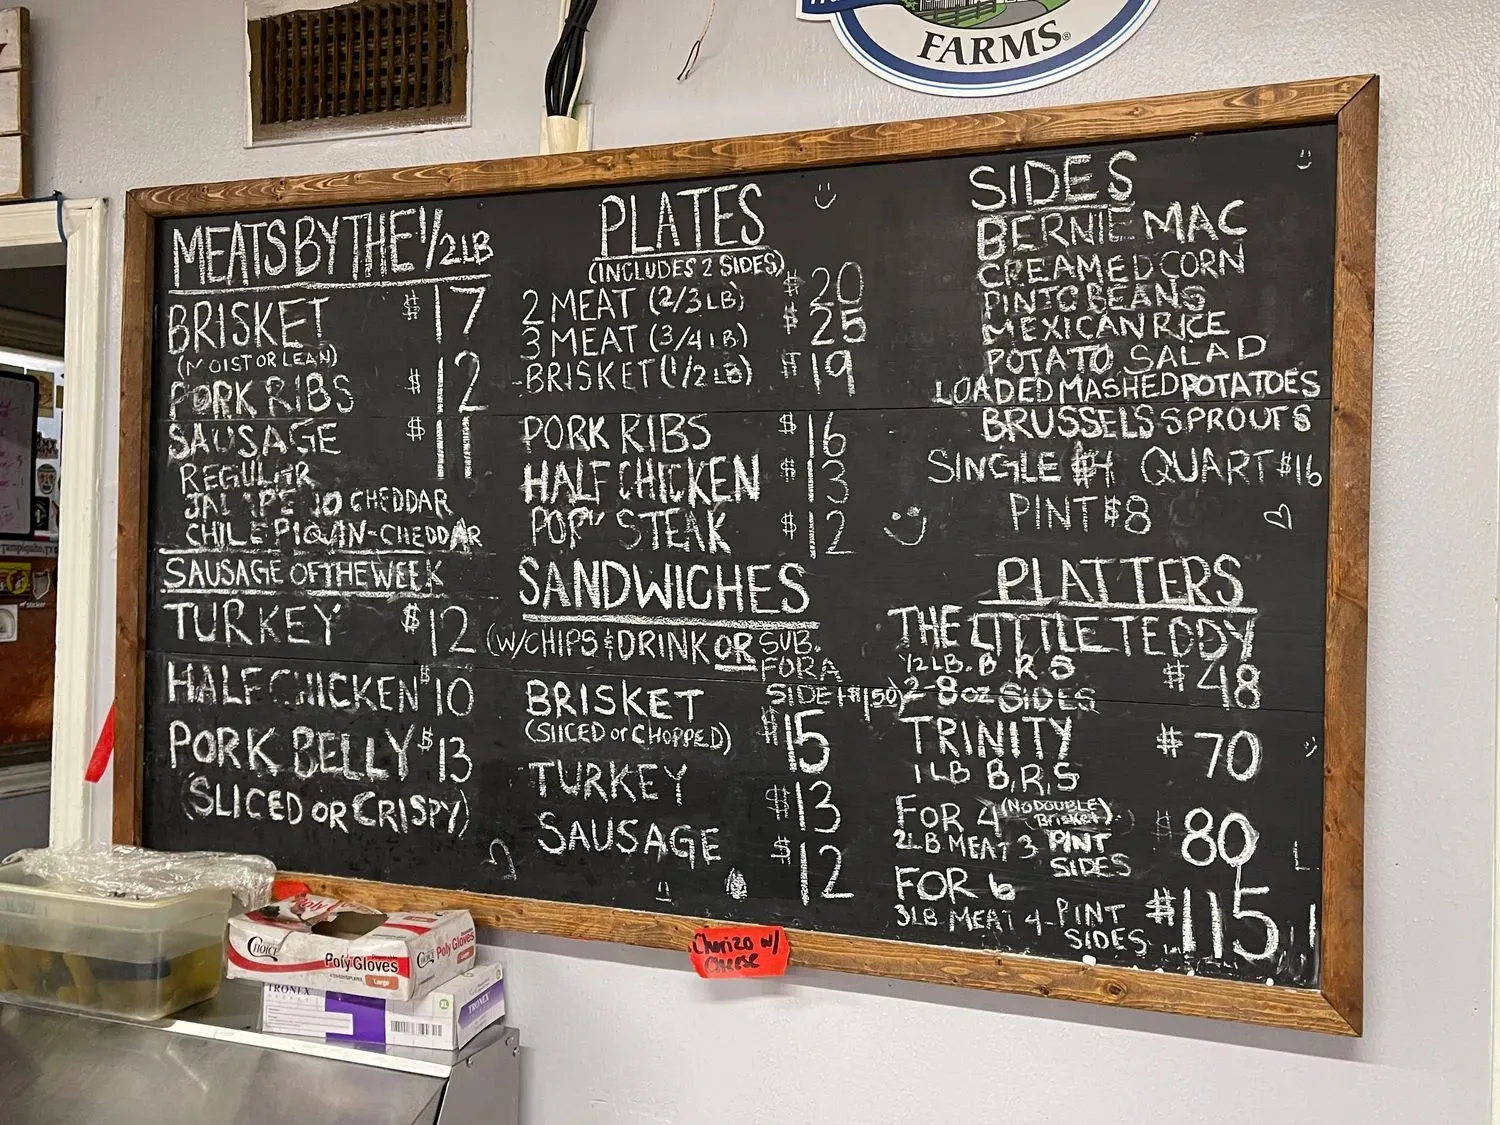 FARMS
MEATS BY THE 1/2 LB
BRISKET $17
(MOIST OR LEAN)
PORK RIBS $12
SAUSAGE $11
REGULAR
JALAPENO CHEDDAR
CHILE PIQUIN-CHEDDAR
SAUSAGE OF THE WEEK
TURKEY $12
HALF CHICKEN $10
PORK BELLY $13
(SLICED OR CRISPY)
PLATES
(INCLUDES 2 SIDES)
2 MEAT (2/3 LB) $20
3 MEAT (3/4 LB) $25
-BRISKET (1/2 LB) $19
PORK RIBS $16
HALF CHICKEN $13
PORK STEAK $12
SANDWICHES
(W/CHIPS & DRINK OR SUB.
FOR A
SIDE +$1.50)
BRISKET $15
(SLICED or CHOPPED)
TURKEY $13
SAUSAGE $12
SIDES
BERNIE MAC
CREAMED CORN
PINTO BEANS
MEXICAN RICE
POTATO SALAD
LOADED MASHED POTATOES
BRUSSELS SPROUTS
SINGLE $4 QUART $16
PINT $8
PLATTERS
THE LITTLE TEDDY
1/2 LB. B, R, S $48
2-8oz SIDES
TRINITY $70
1 LB B, R, S
FOR 4 (NO DOUBLE Brisket) $80
2LB MEAT 3 PINT
SIDES
FOR 6 $115
3LB MEAT 4-PINT
SIDES
Chorizo w/
cheese
CHOICE
Poly Gloves
Large
CHOICE Poly Gloves
TRONEX
TRONEX
XL
sticker